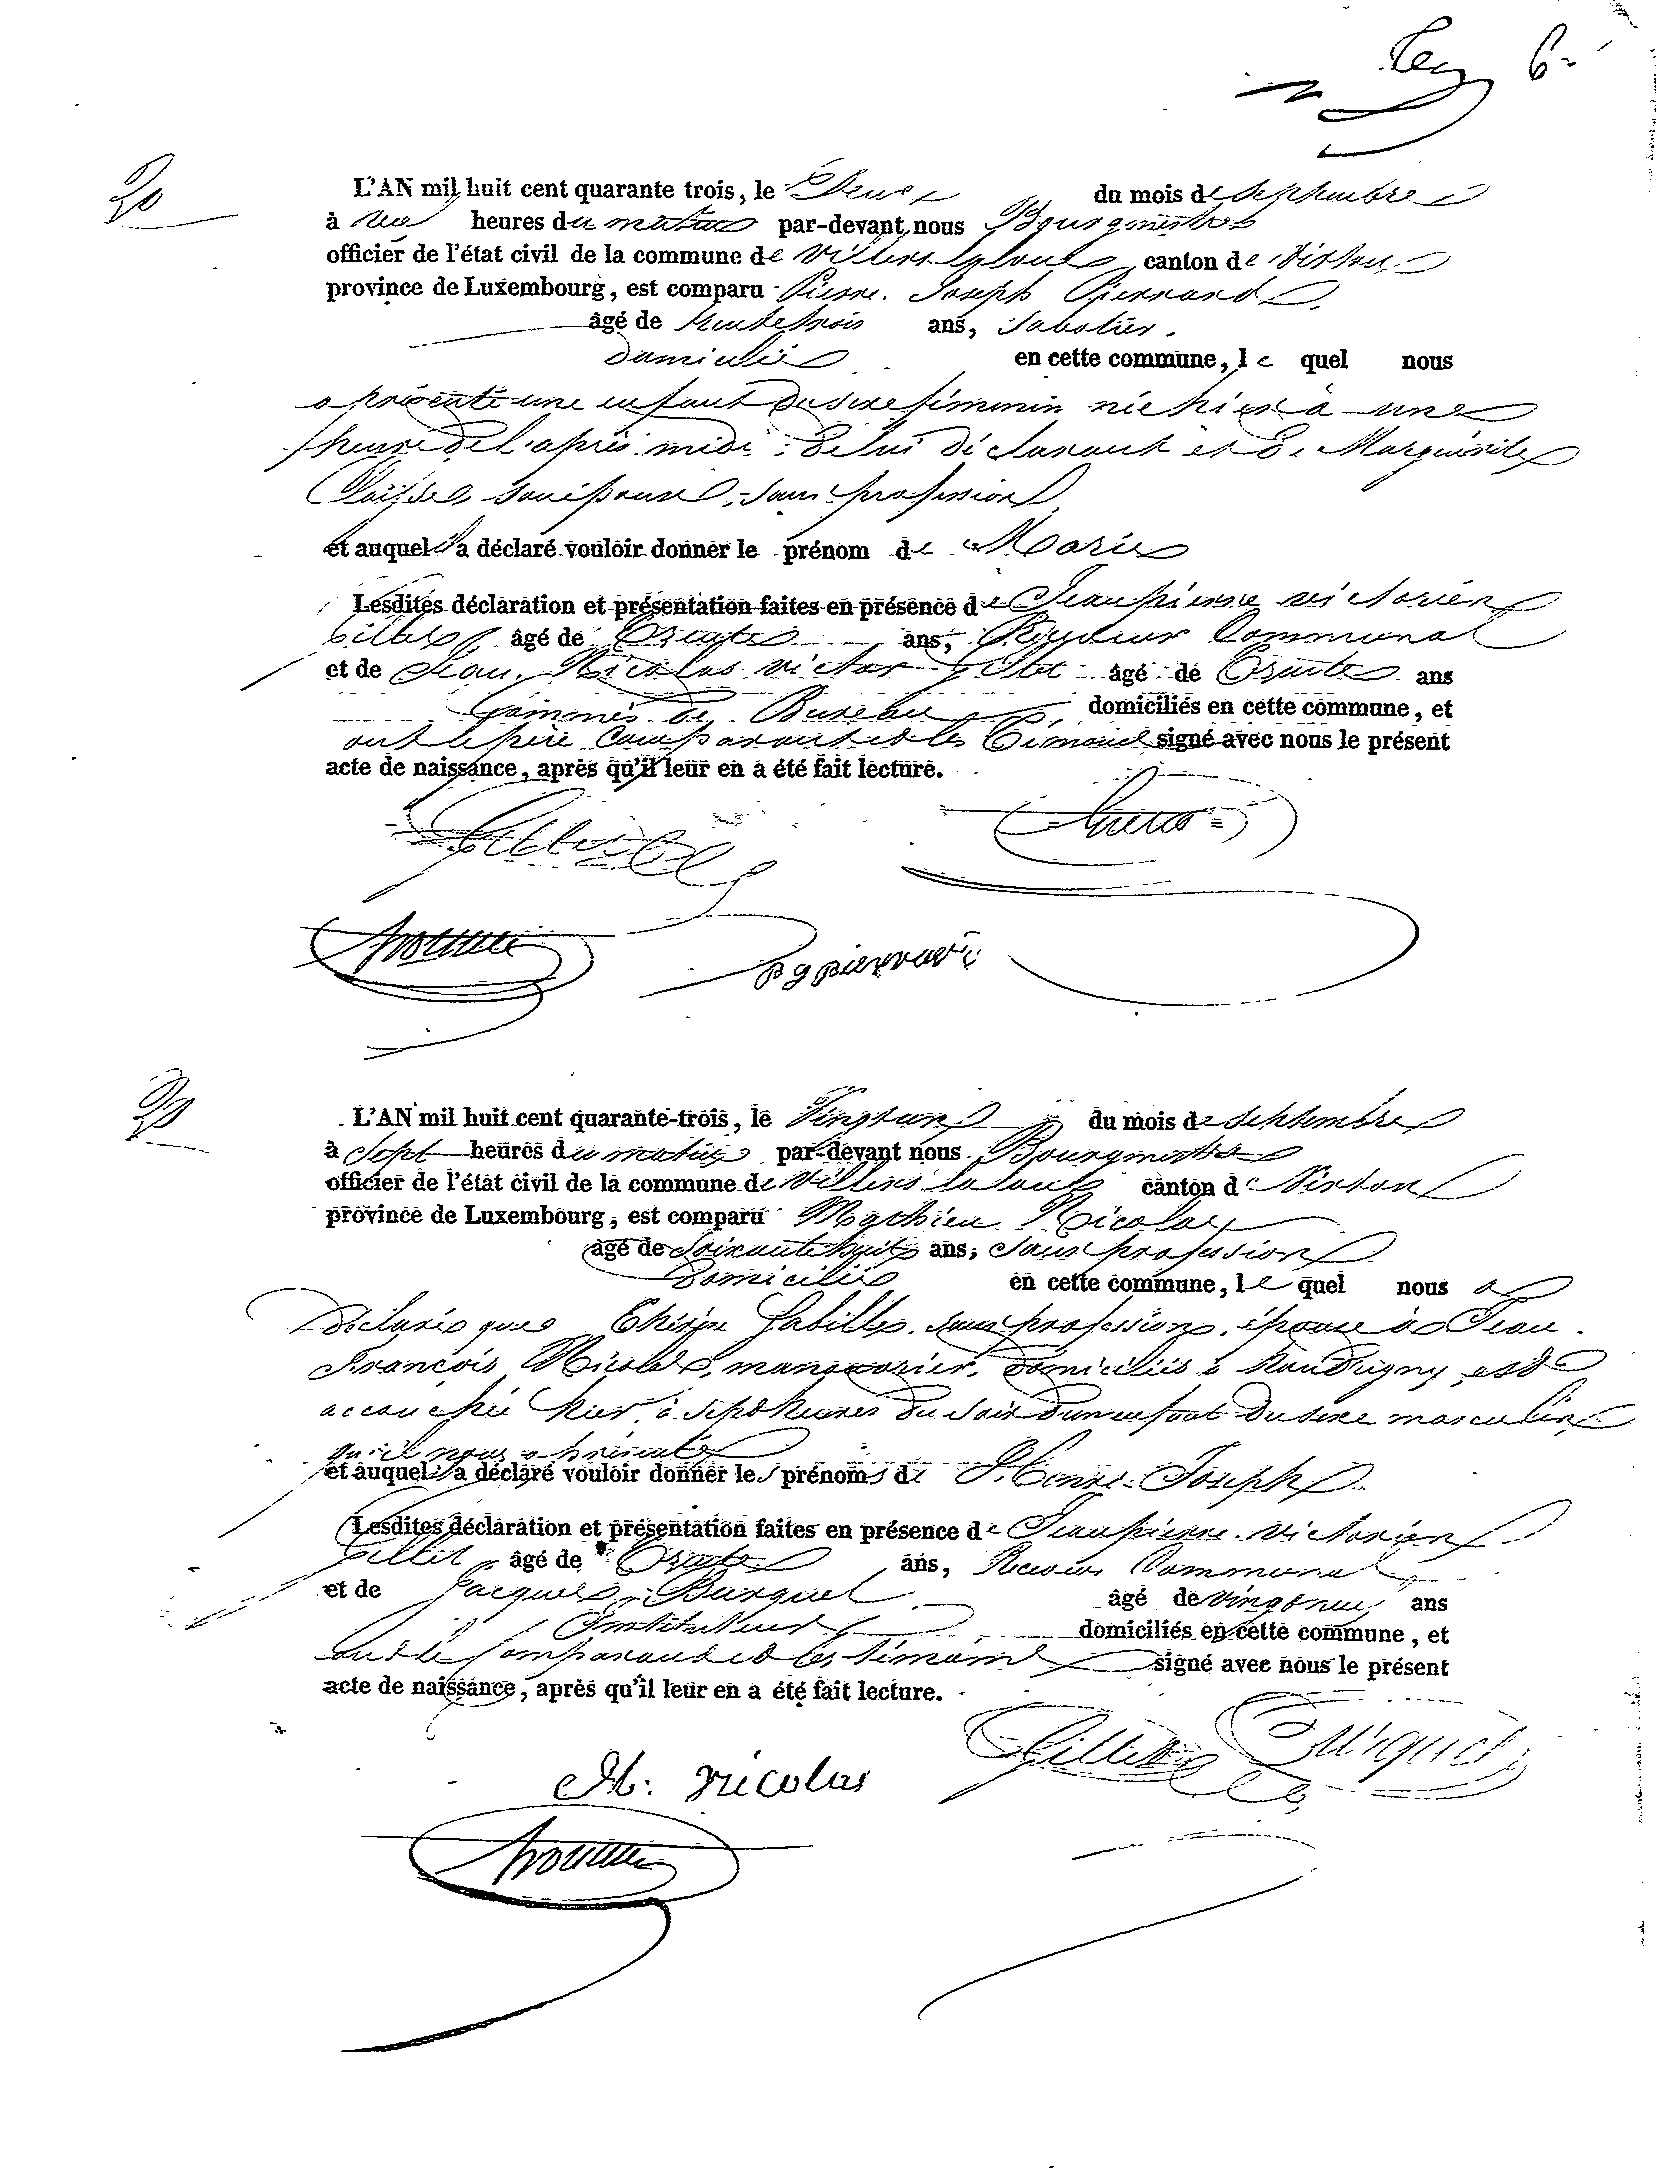 6
20
L'AN mil huit cent quarante trois, le Deux du mois de Septembre
à heures du matin par-devant nous Bourgmestre
officier de l'état civil de la commune de Villers la loue canton de Virton
province de Luxembourg, est comparu Pierre Joseph Piernard
âgé de trente trois ans, Sabotier.
domicilié en cette commune, le quel nous
a présenté une enfant du sexe féminin née hier à une
heure de l'après midi de lui déclarant et de Marguérite
son épouse, sans profession
et auquel il a déclaré vouloir donner le prénom de Marie
Lesdites déclaration et présentation faites en présence de Jean pierre victorien
Gillet, âgé de Trente ans, Receveur Communal
et de Jean Nicolas victor âgé de Trente ans
Commis de Bureau domiciliés en cette commune, et
ont le père Comparant et les Témoins signé avec nous le présent
acte de naissance, après qu'il leur en a été fait lecture.
Gillet
pj piernard
L'AN mil huit cent quarante-trois, le Vingt un du mois de Septembre
à Sept heures du matin par-devant nous Bourgmestre
officier de l'état civil de la commune de Villers la loue canton de Virton
province de Luxembourg, est comparu Mathieu Nicolas
âgé de Soixante huit ans, Sans profession
Domicilié en cette commune, le quel nous a
déclaré que Thérèse Sans profession, épouse à Jean
François Nicolas, manoeuvrier, domiciliés à houdrigny, est
accouchée hier à sept heures du soir d'un enfant du sexe masculin
qu'il nous a présenté
et auquel il a déclaré vouloir donner les prénoms de Henri Joseph
Lesdites déclaration et présentation faites en présence de Jean pierre victorien
Gillet, âgé de Trente ans, Receveur Communal
et de Jacques Burquel âgé de ans
Instituteur domiciliés en cette commune, et
ont le Comparant et les témoins signé avec nous le présent
acte de naissance, après qu'il leur en a été fait lecture.
Gillet
M. Nicolas